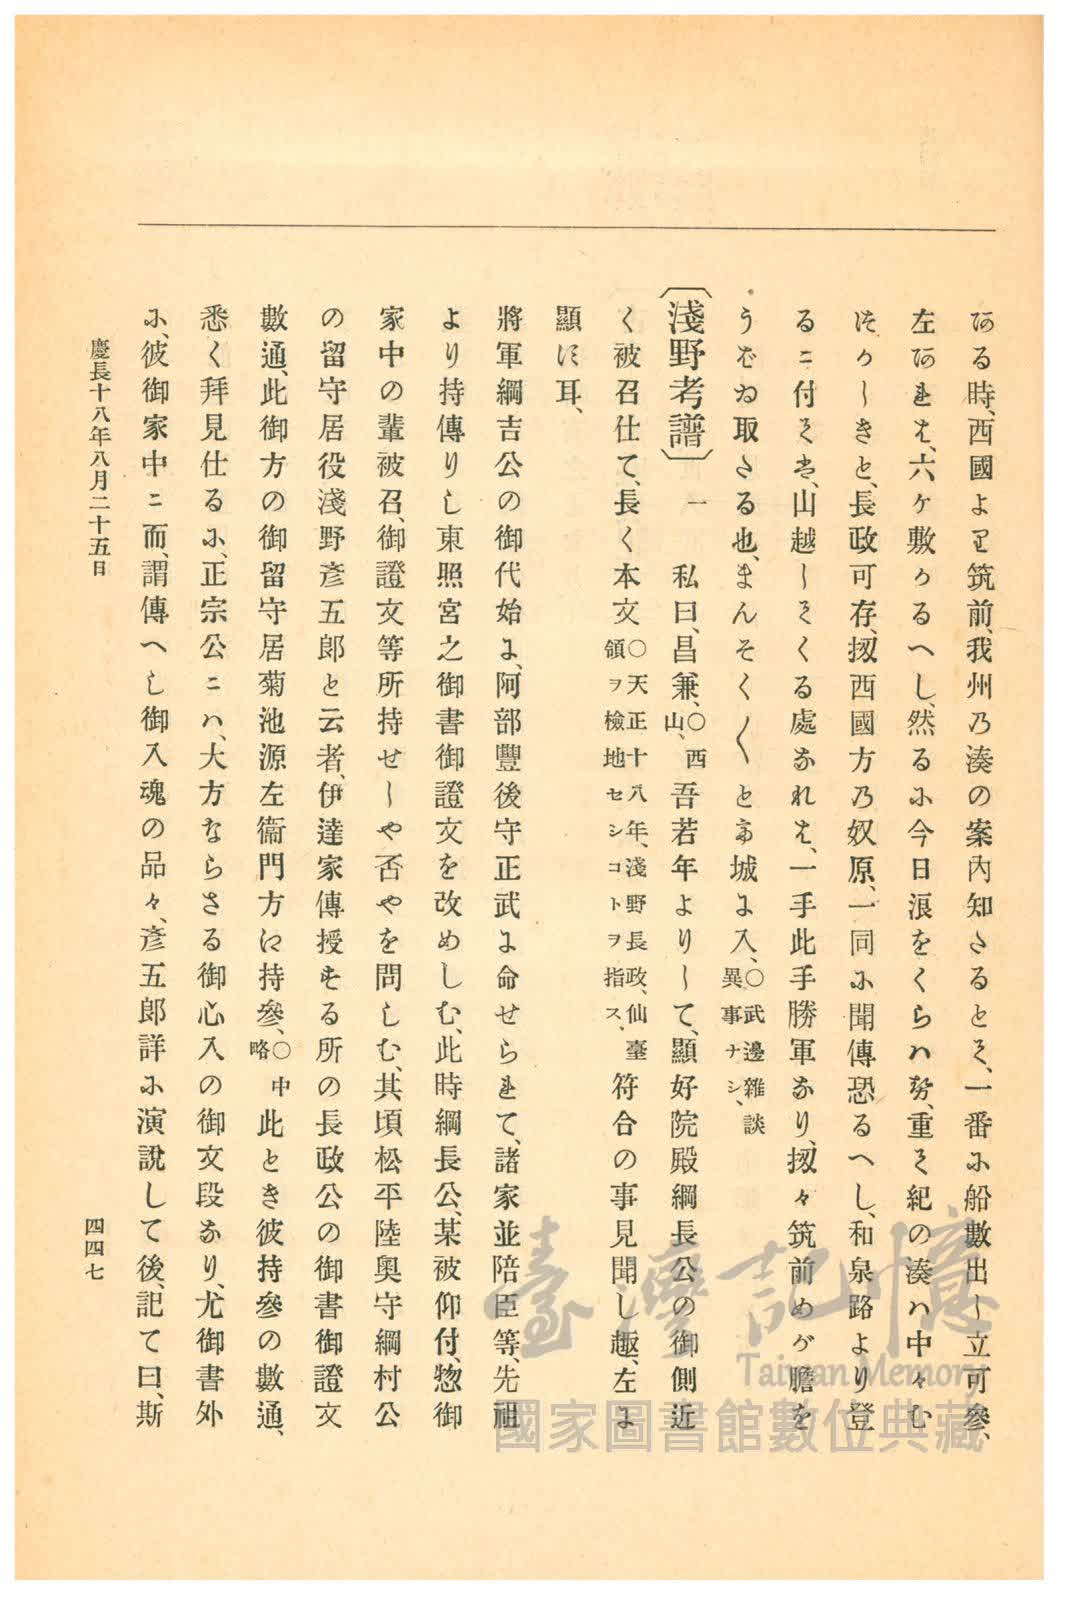 ある時、西國より筑前、我州乃湊の案內知さるとて、一番に船數出し立可參、
左あれは、六ケ敷かるへし、然るに今日浪をくらハ努、重て紀の湊ハ中々む
つかしきと、長政可存、扨西國方乃奴原、一同に聞傳恐るへし、和泉路より登
るニ付ては、山越してくる處なれは、一手此手勝軍なり、扨々筑前めが膽を
うばゐ取さる也、まんそく〳〵とて城に入、○武邊雜談
異事ナシ、
〔淺野考譜〕 一 私曰、昌兼、○西
山、吾若年よりして、顯好院殿綱長公の御側近
く被召仕て、長く本文○天正十八年、淺野長政、仙臺
領ヲ檢地セシコトヲ指ス、符合の事見聞し趣、左に
顯に耳、
將軍綱吉公の御代始に、阿部豐後守正武に命せられて、諸家並陪臣等、先祖
より持傳りし東照宮之御書御證文を改めしむ、此時綱長公、某被仰付、惣御
家中の輩被召、御證文等所持せしや否やを問しむ、其頃松平陸奧守綱村公
の留守居役淺野彥五郎と云者、伊達家傳授する所の長政公の御書御證文
數通、此御方の御留守居菊池源左衞門方に持參、○中
略 此とき彼持參の數通、
悉く拜見仕るに、正宗公ニハ、大方ならさる御心入の御文段なり、尤御書外
に、彼御家中ニ而、謂傳へし御入魂の品々、彥五郎詳に演說して後、記て曰、斯
慶長十八年八月二十五日
四四七
臺灣記憶
Taiwan Memory
國家圖書館數位典藏